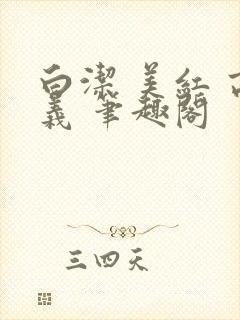 白潔 美紅 高
義 筆趣閣
三四天